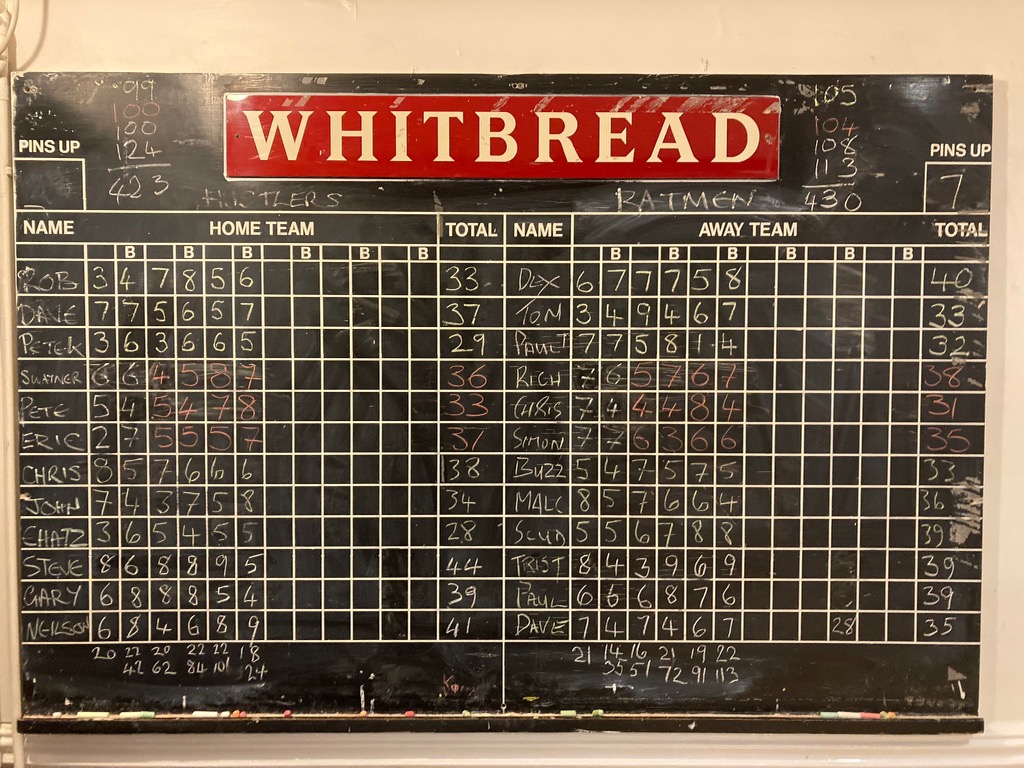 99
100
100
124
423
WHITBREAD
105
104
108
113
430
PINS UP
PINS UP
7
HUSTLERS
BATMEN
NAME HOME TEAM TOTAL NAME AWAY TEAM TOTAL
B B B B B B B B B B B B
ROB 3 4 7 8 5 6 33 DEX 6 7 7 7 5 8 40
DAVE 7 7 5 6 5 7 37 TOM 3 4 9 4 6 7 33
PETER 3 6 3 6 6 5 29 PAUL T 7 7 5 8 1 4 32
SWAYNER 6 6 4 5 8 7 36 RICH 7 6 5 7 6 7 38
PETE 5 4 5 4 7 8 33 CHRIS 7 4 4 4 8 4 31
ERIC 2 7 5 5 5 7 31 SIMON 7 7 6 3 6 6 35
CHRIS 8 5 7 6 6 6 38 BUZZ 5 4 7 5 7 5 33
JOHN 7 4 3 7 5 8 34 MALC 8 5 7 6 6 4 36
CHATZ 3 6 5 4 5 5 28 5 5 6 7 8 8 39
STEVE 8 6 8 8 9 5 44 TRIST 8 4 3 9 6 9 39
GARY 6 8 8 8 5 4 39 PAUL 6 6 6 8 7 6 39
NEILSON 6 8 4 6 8 9 41 DAVE 7 4 7 4 6 7 28 35
20 22 20 22 22 18 21 14 16 21 19 22
42 62 84 101 124 35 51 72 91 113